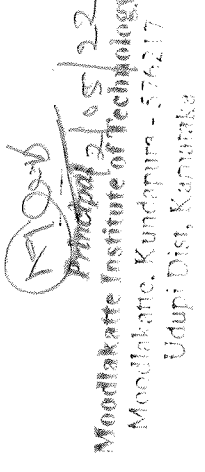 21/08/22
Principal
Moodlakatte Institute of Technology
Moodlakatte, Kundapura - 576217
Udupi Dist, Karnataka